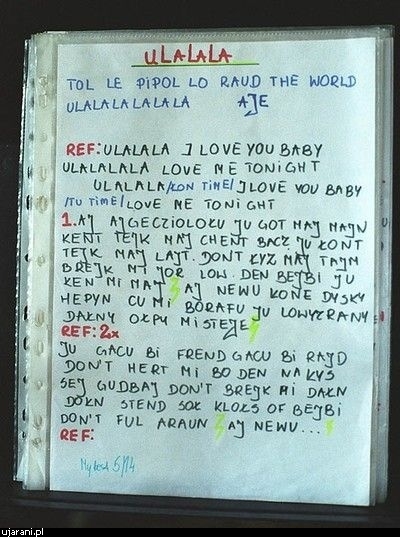 ULALALA
TOL LE PIPOL LO RAUD THE WORLD
ULALALALALALA AJE
REF: ULALALA I LOVE YOU BABY
ULALALALA LOVE ME TONIGHT
ULALALA /KON TIME/ I LOVE YOU BABY
/TU TIME/ LOVE ME TONIGHT
1. AJ AJGECZIOLOKU JU GOT MAJ MAJN
KENT TEJK MAJ CHENT BACZ JU KONT
TEJK MAJ LAJT. DONT KYZ MAJ TAJM
BREJK MI JOR LOW. DEN BEJBI JU
KEN MI MAJ AJ NEWU KONE DYSKY
HEPYN CU MI BORAFU JU LOWYCRANY
DAŁNY OŁPU MISTEJE
REF: 2x
JU GACU BI FREND GACU BI RAJD
DON'T HERT MI BO DEN NA KYS
SEJ GUDBAJ DON'T BREJK MI DAŁN
DOŁN STEND SOŁ KLOŁS OF BEJBI
DON'T FUL ARAUN AJ NEWU...
REF:
5/14
ujarani.pl